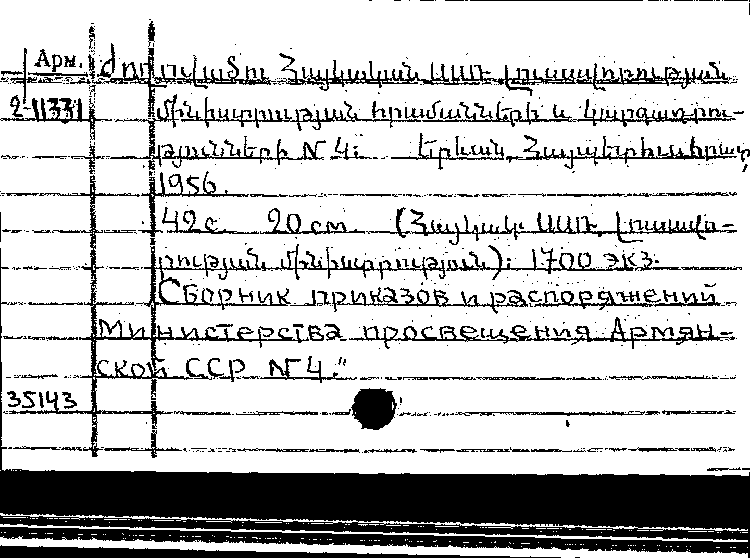 Арм. Ժողովածու Հայկական ՍՍՌ Լուսավորության
2-11331 մինիստրության հրամանների և կարգադրու-
թյունների N 4: Երևան, Հայպետհրատ,
1956.
42 с. 20 см. (Հայկակ. ՍՍՌ. Լուսավո-
րության մինիստրություն): 1700 экз.
Сборник приказов и распоряжений
Министерства просвещения Армян-
ской ССР N 4."
35143